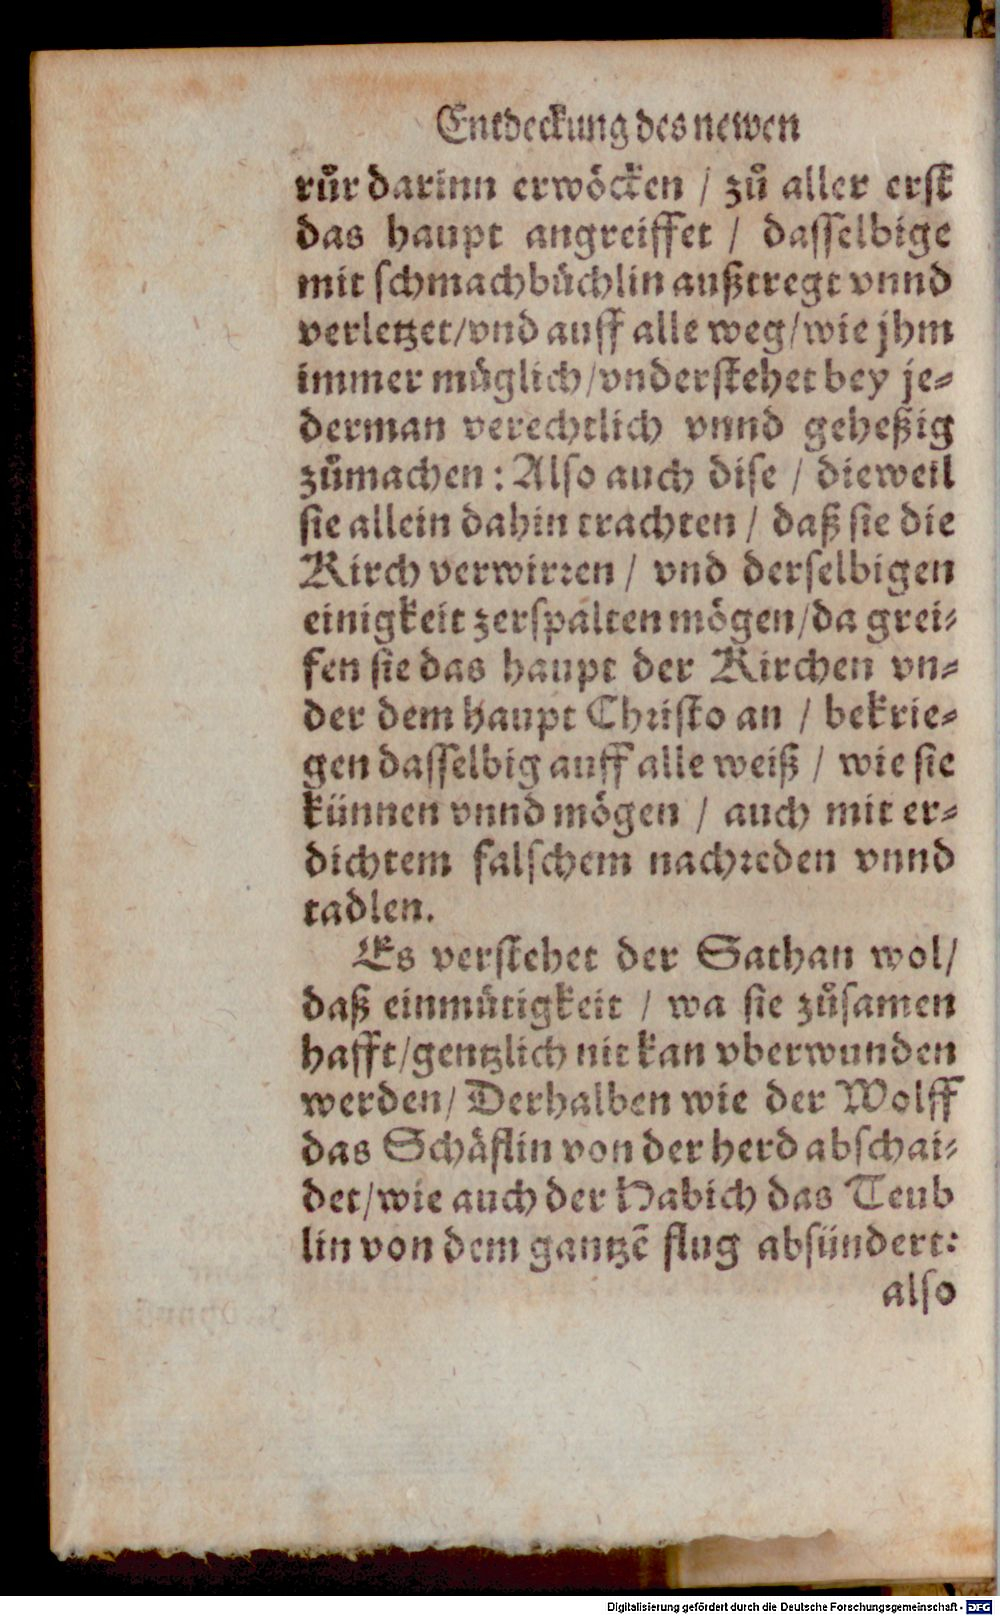 Entdeckung des newen
růr darinn erwöcken / zů aller erst
das haupt angreiffet / dasselbige
mit schmachbüchlin außtregt vnnd
verletzet/vnd auff alle weg/wie jhm
immer müglich/vnderstehet bey je⸗
derman verechtlich vnnd geheßig
zůmachen: Also auch dise / dieweil
sie allein dahin trachten / daß sie die
Kirch verwirꝛen / vnd derselbigen
einigkeit zerspalten mögen/da grei⸗
fen sie das haupt der Kirchen vn⸗
der dem haupt Chꝛisto an / bekrie⸗
gen dasselbig auff alle weiß / wie sie
künnen vnnd mögen / auch mit er⸗
dichtem falschem nachꝛeden vnnd
tadlen.
Es verstehet der Sathan wol/
daß einmütigkeit / wa sie zůsamen
hafft/gentzlich nit kan vberwunden
werden/ Derhalben wie der Wolff
das Schäflin von der herd abschai⸗
det/wie auch der Habich das Teub
lin von dem gantzē flug absündert:
also
Digitalisierung gefördert durch die Deutsche Forschungsgemeinschaft - DFG